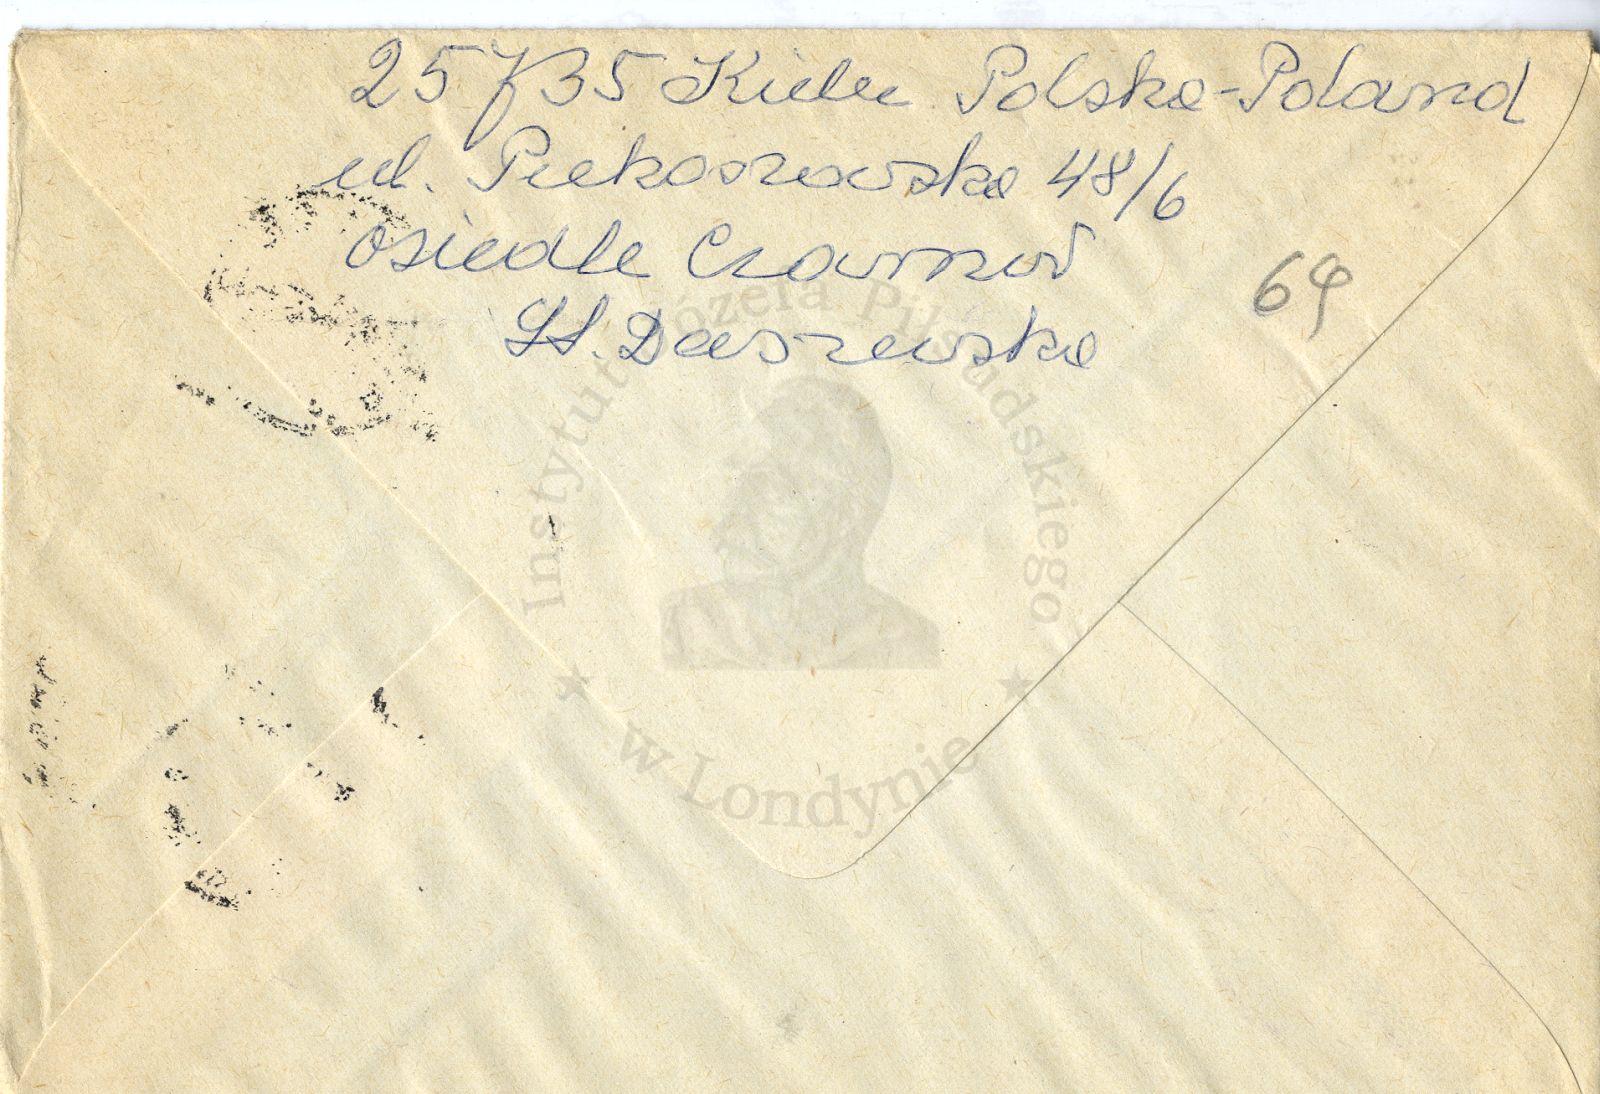 25735 Kielce Polska-Poland
ul. Piekoszowska 48/6
osiedle Czarnów
St. Daszewska
64
Instytut Józefa Piłsudskiego
w Londynie